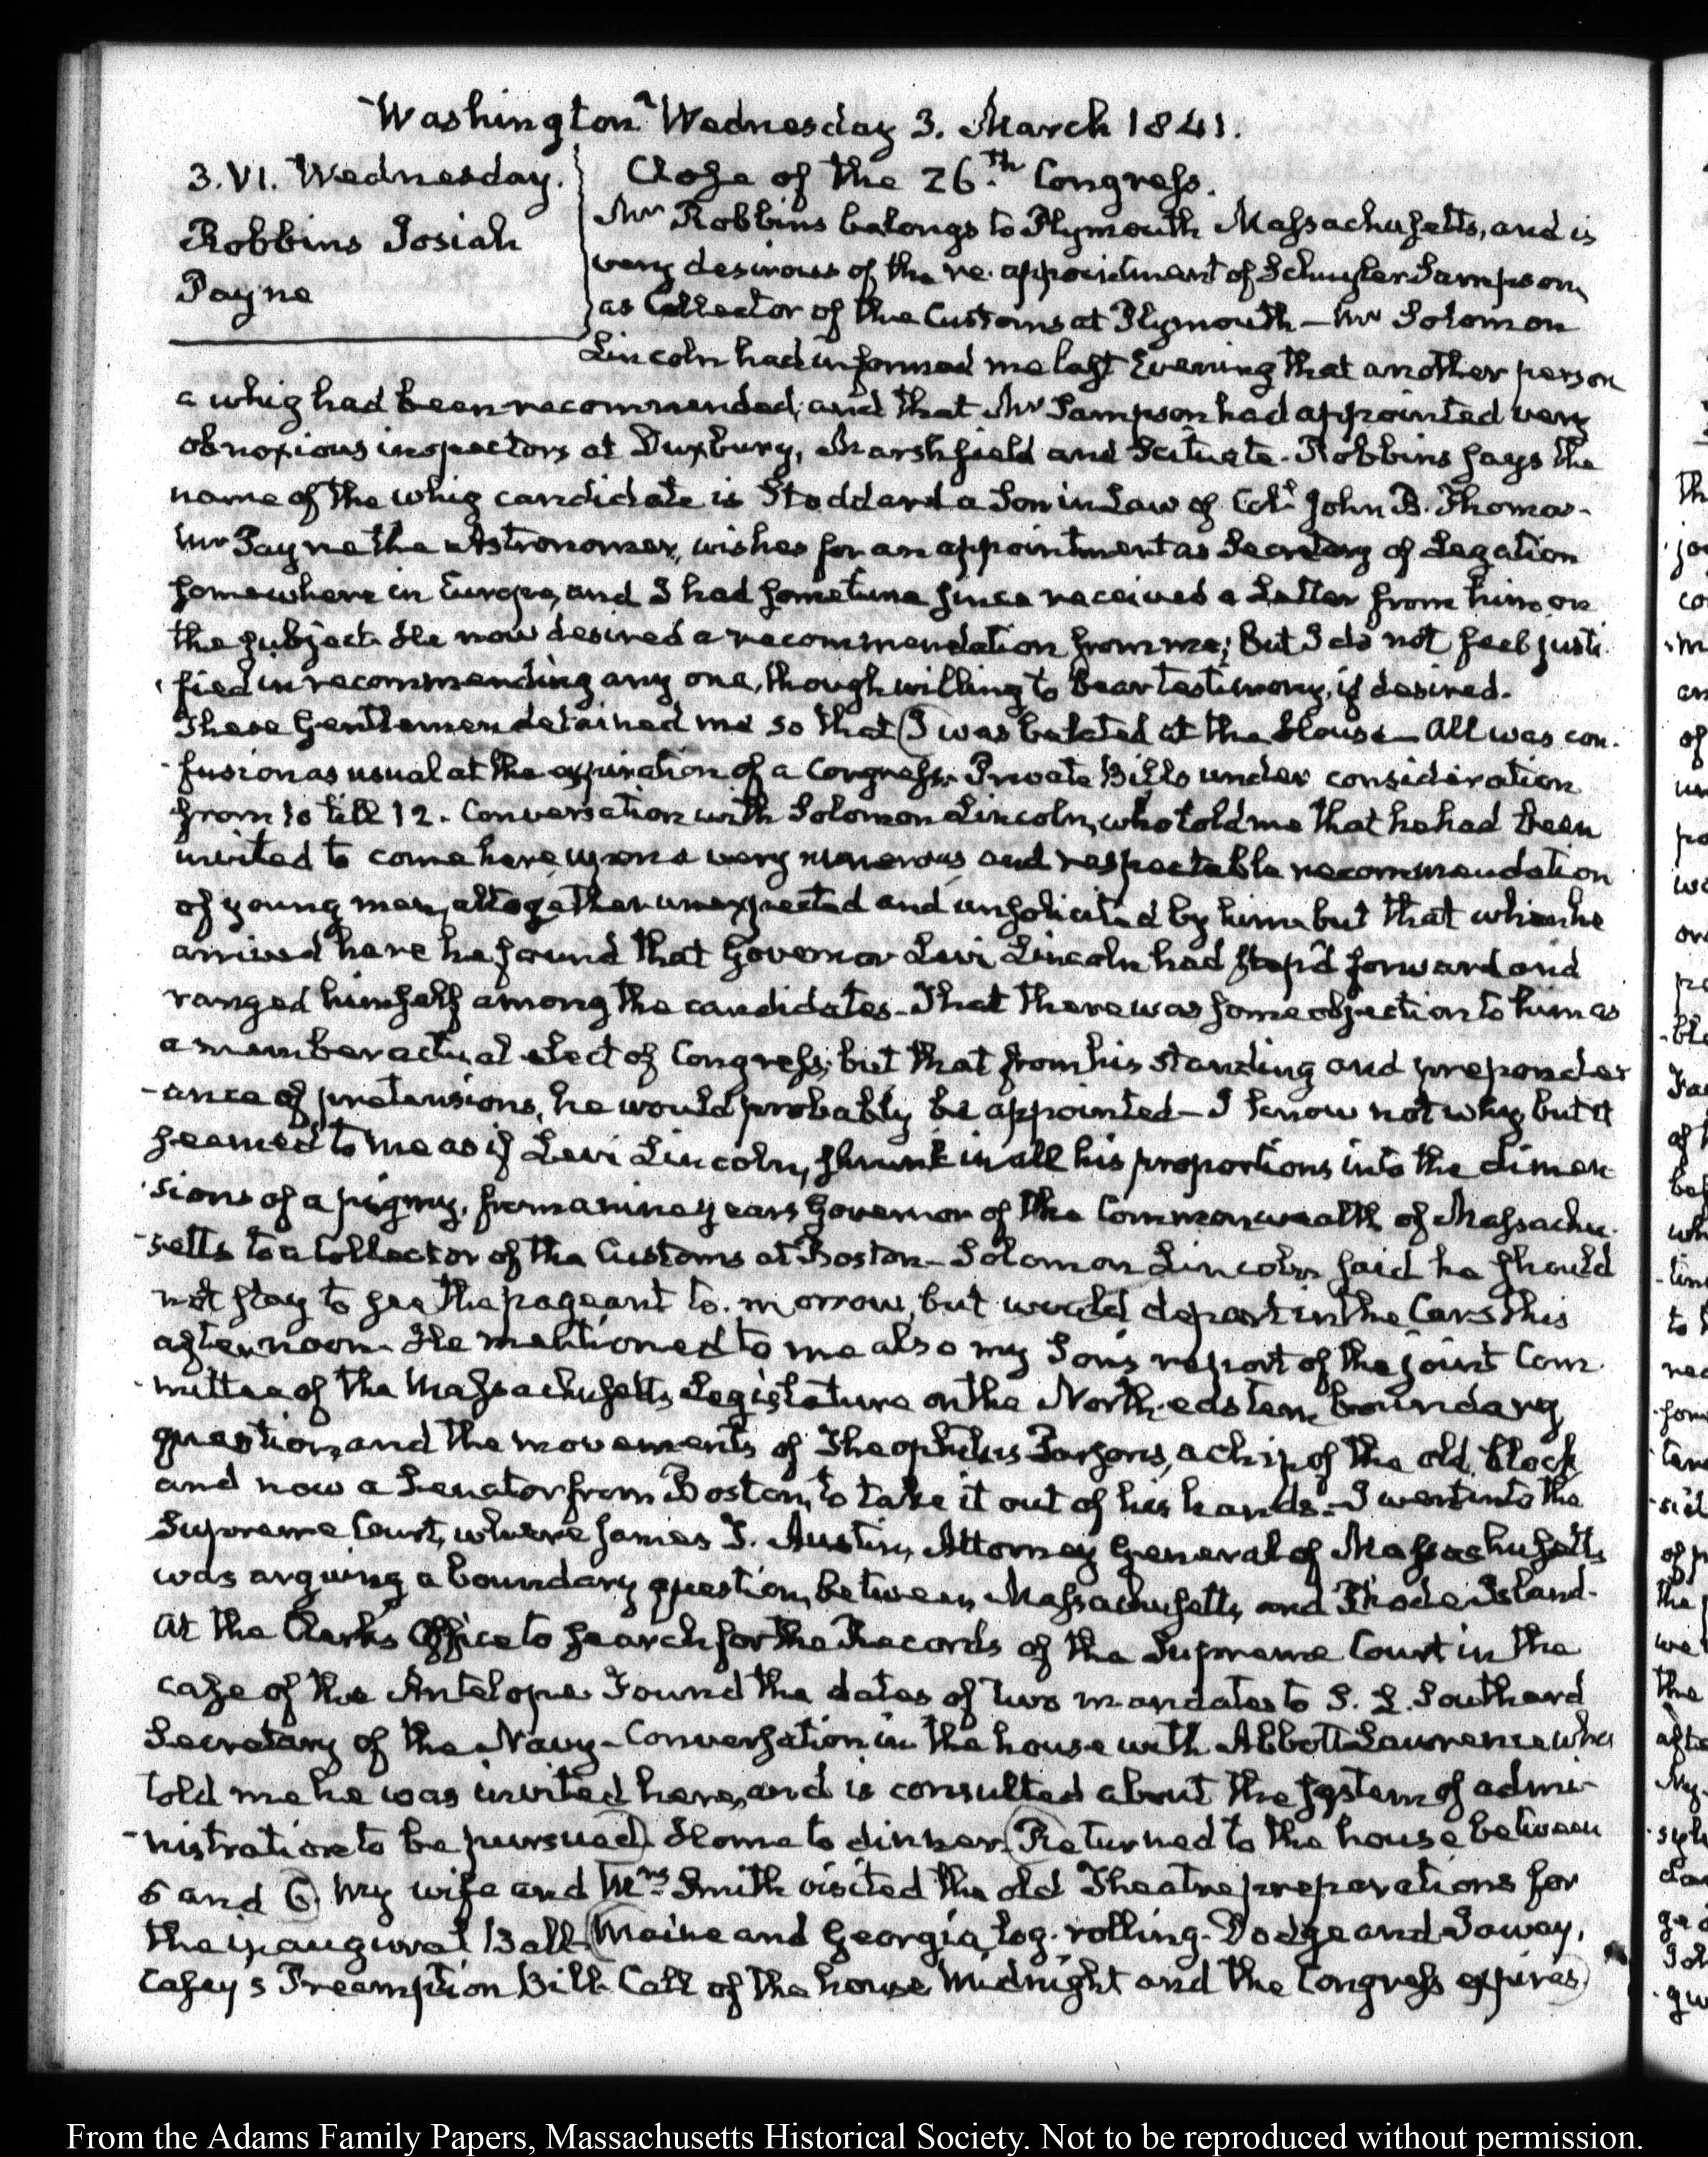 Washington Wednesday 3. March 1841.
3. VI. Wednesday.
Robbins Josiah
Payne
Close of the 26.th Congress.
Mr Robbins belongs to Plymouth Massachusetts, and is
very desirous of the re-appointment of Schuyler Sampson,
as Collector of the Customs at Plymouth — Mr Solomon
Lincoln had informed me last Evening that another person
a whig had been recommended, and that Mr Sampson had appointed very
obnoxious inspectors at Duxbury, Marshfield and Scituate. Robbins says the
name of the whig candidate is Stoddard a Son in Law of Col. John B. Thomas.
Mr Payne the Astronomer, wishes for an appointment as Secretary of Legation
somewhere in Europe, and I had sometime since received a Letter from him on
the subject. He now desired a recommendation from me; but I do not feel justi-
fied in recommending any one, though willing to bear testimony, if desired.
These Gentlemen detained me so that (I was belated at the House — All was con-
-fusion as usual at the expiration of a Congress. Private Bills under consideration
from 10 till 12. Conversation with Solomon Lincoln, who told me that he had been
invited to come here, upon a very numerous and respectable recommendation
of young men, altogether unexpected and unsolicited by him but that when he
arrived here he found that Governor Levi Lincoln had step'd forward and
ranged himself among the candidates. That there was some objection to him as
a member actual elect of Congress; but that from his standing and preponder
-ance of pretensions, he would probably be appointed — I know not why, but it
seemed to me as if Levi Lincoln, shrunk in all his proportions into the dimen-
-sions of a pigmy, from a nine years Governor of the Commonwealth of Massachu-
-setts to a Collector of the Customs at Boston — Solomon Lincoln said he should
not stay to see the pageant to-morrow, but would depart in the Cars this
afternoon. He mentioned to me also my Son's report of the joint Com-
-mittee of the Massachusetts Legislature on the North-eastern boundary
question, and the movements of Theophilus Parsons, a chip of the old block
and now a Senator from Boston, to take it out of his hands. I went into the
Supreme Court, where James T. Austin, Attorney General of Massachusetts
was arguing a boundary question, between Massachusetts and Rhode Island.
At the Clerk's Office to search for the Records of the Supreme Court in the
case of the Antelope Found the dates of two mandates to S. L. Southard
Secretary of the Navy — Conversation in the house with Abbott Lawrence who
told me he was invited here, and is consulted about the system of admi-
-nistration to be pursued). Home to dinner. (Returned to the house between
5 and 6). My wife and Mrs Smith visited the old Theatre preparations for
the inaugural Ball. (Maine and Georgia log-rolling. Dodge and Ioway,
Casey's Preemption Bill. Call of the house Midnight and the Congress expires)
From the Adams Family Papers, Massachusetts Historical Society. Not to be reproduced without permission.